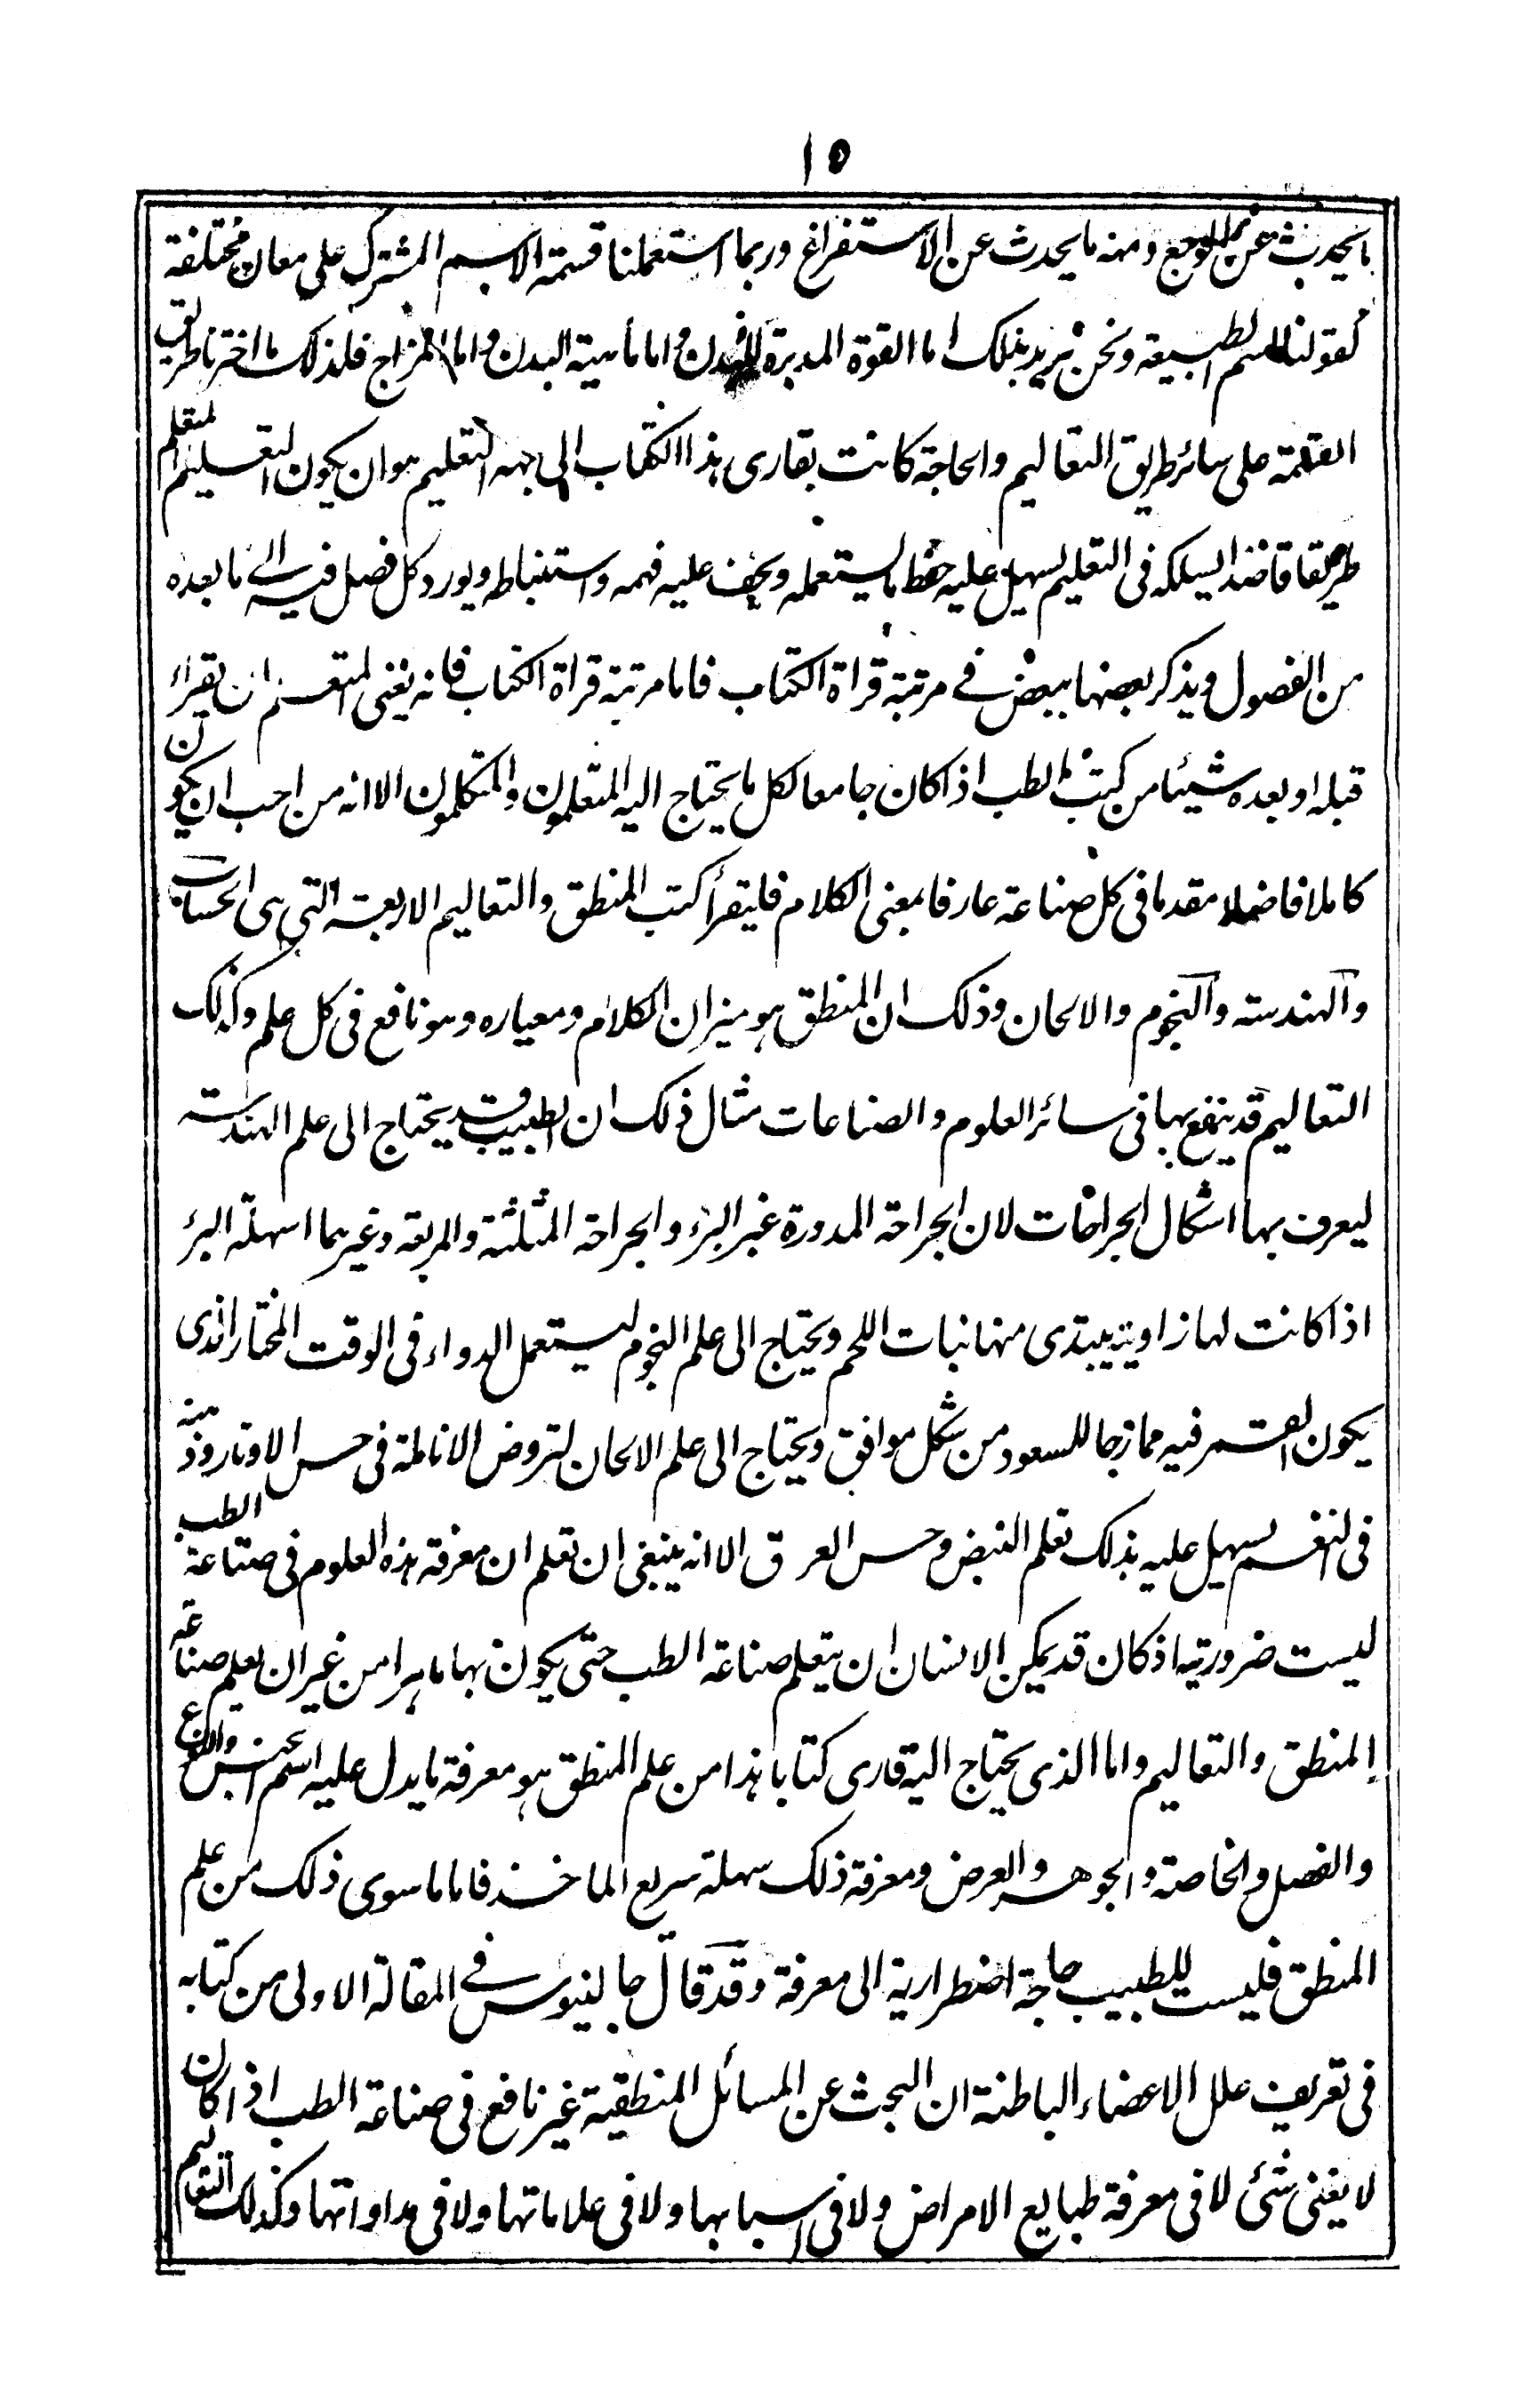 ١٥
ما يحدث عن الوجع ومنه ما يحدث عن الاستفراغ وربما استعملنا قسمة الاسم المشترك على معان مختلفة
كقولنا اسم الطبيعة ونحن نريد بذلك اما القوة المدبرة للبدن واما ماهية البدن واما المزاج فلذلك ما اخترنا طريق
القسمة على سائر طريق التعاليم والحاجة كانت بقارى هذا الكتاب الى جهة التعليم هو ان يكون التعليم المتعلم
طريقا قاصدا ليسلكه فى التعليم يسهل عليه حفظ ما يستعمله ويخف عليه فهمه واستنباطه ويورد كل فصل فيه الى ما بعده
من الفصول ويذكر بعضها ببعض فى مرتبة قراة الكتاب فاما مرتبة قراة الكتاب فانه يغنى المتعلم ان يقراء
قبله او بعده شيئا من كتب الطب اذا كان جامعا لكل ما يحتاج اليه المتعلمون والمتكلمون الا انه من احب ان يكون
كاملا فاضلا مقدما فى كل صناعة عارفا بمعنى الكلام فليقرأ كتب المنطق والتعاليم الاربعة التى هى الحساب
والهندسة والنجوم والالحان وذلك ان المنطق هو ميزان الكلام ومعياره وهو نافع فى كل علم وكذلك
التعاليم قد ينفع بها فى سائر العلوم والصناعات مثال ذلك ان الطبيب قد يحتاج الى علم الهندسة
ليعرف بها اشكال الجراحات لان الجراحة المدورة عسر البرء والجراحة المثلثة والمربعة وغيرهما اسهلة البرء
اذا كانت لها زاوية يبتدى منها نبات اللحم ويحتاج الى علم النجوم ليستعمل الدواء فى الوقت المختار الذى
يكون القمر فيه ممازجا للسعود من شكل موافق ويحتاج الى علم الالحان لتروض الاناملة فى حس الاوتار وذهنه
فى النغم يسهل عليه بذلك تعلم النبض وحس العرق الا انه ينبغى ان تعلم ان معرفة هذه العلوم فى صناعة الطب
ليست ضرورية اذ كان قد يمكن الانسان ان يتعلم صناعة الطب حتى يكون بها ماهرا من غير ان يعلم صناعة
المنطق والتعاليم واما الذى يحتاج اليه قارى كتابا هذا من علم المنطق هو معرفة ما يدل عليه اسم الجنس والنوع
والفصل والخاصة والجوهر والعرض ومعرفة ذلك سهلة سريع الماخذ فاما ما سوى ذلك من علم
المنطق فليست للطبيب حاجة اضطرارية الى معرفة وقد قال جالينوس فى المقالة الاولى من كتابه
فى تعريف علل الاعضاء الباطنة ان البحث عن المسائل المنطقية غير نافع فى صناعة الطب اذ اكان
لا يغنى شئ لا فى معرفة طبايع الامراض ولا فى اسبابها ولا فى علاماتها ولا فى مداواتها وكذلك التعاليم